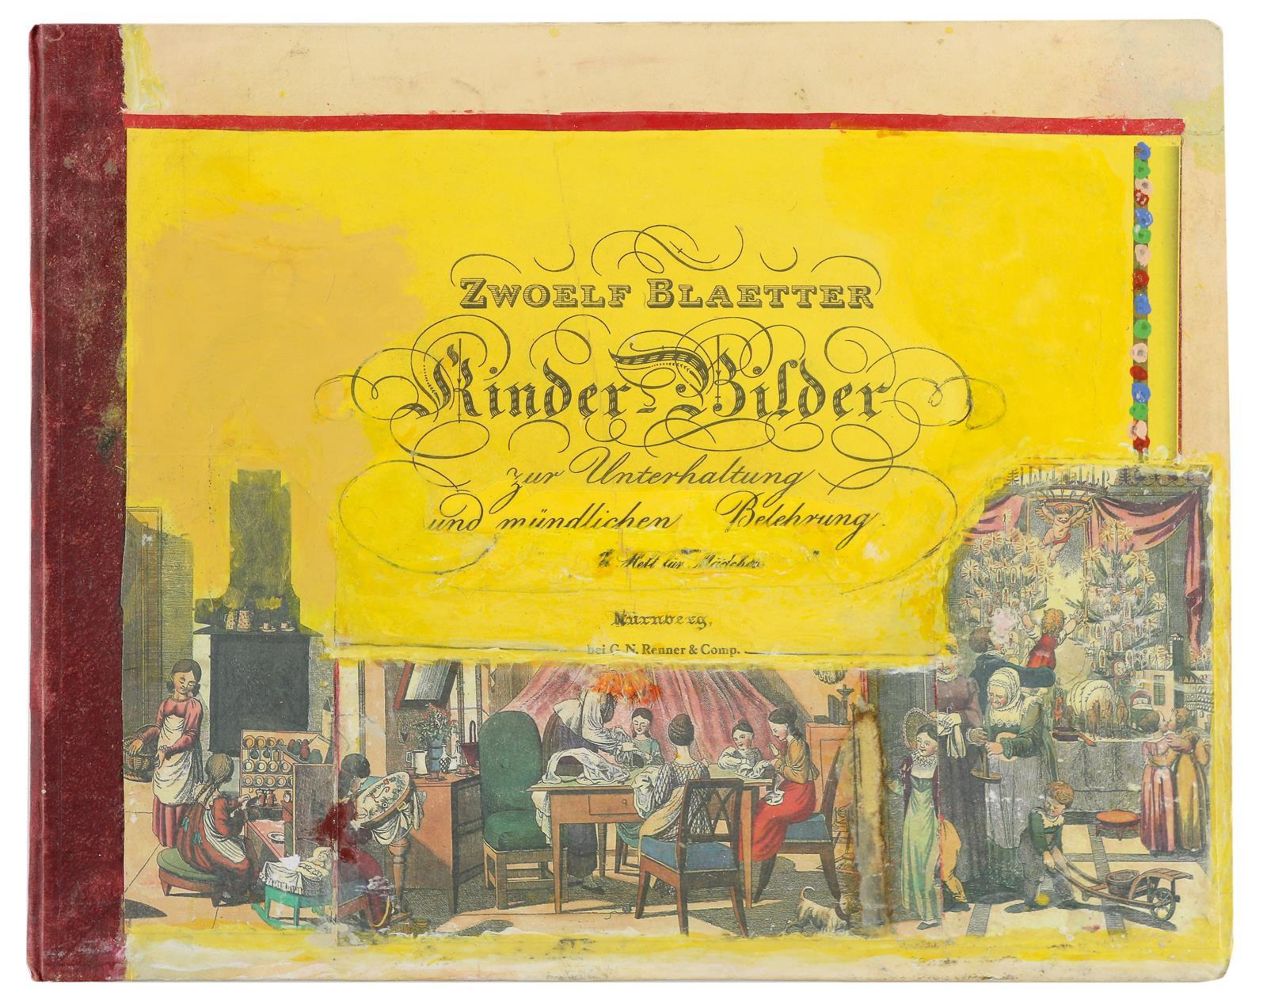 ZWOELF BLAETTER
Kinder-Bilder
zur Unterhaltung
und mündlichen Belehrung.
Heft für Mädchen
Nürnberg,
bei G. N. Renner & Comp.